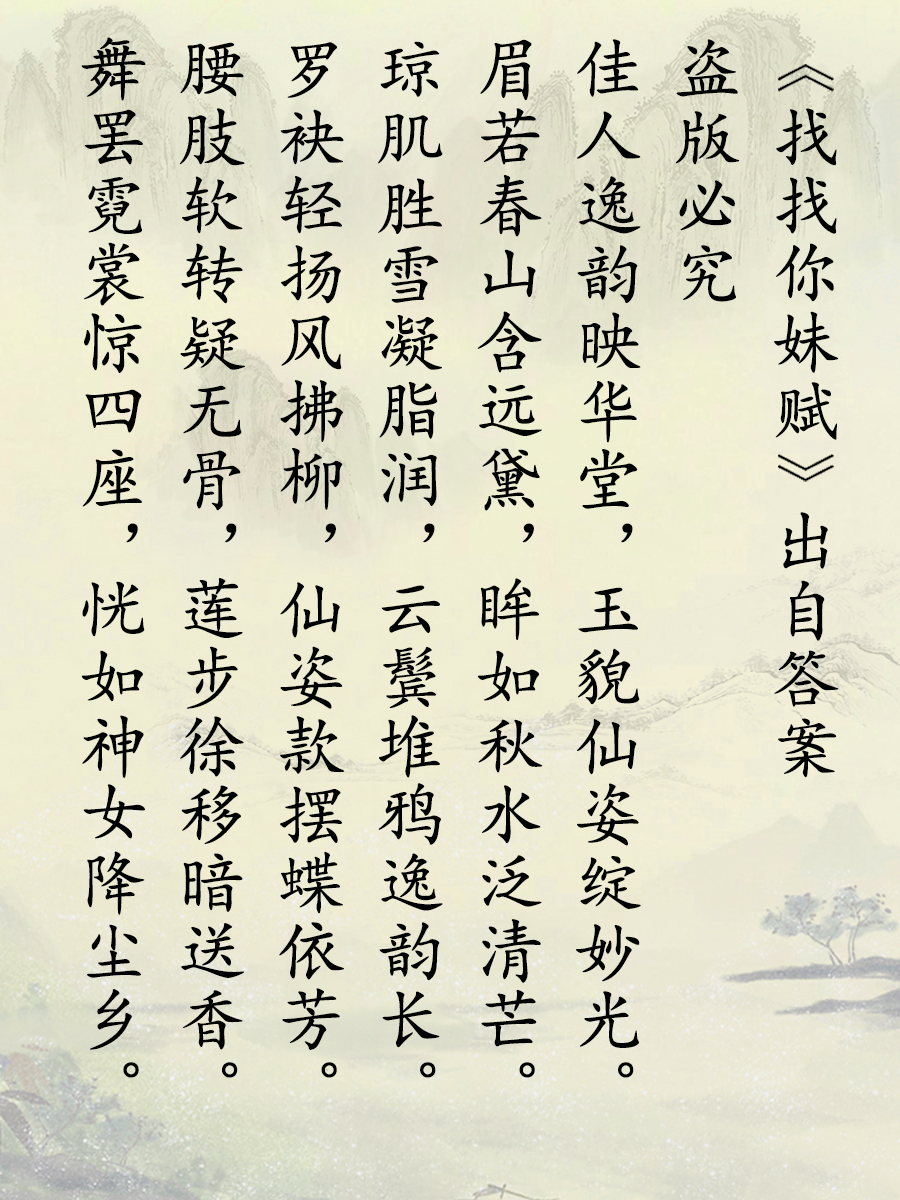 《找找你妹赋》出自答案
盗版必究
佳人逸韵映华堂，玉貌仙姿绽妙光。
眉若春山含远黛，眸如秋水泛清芒。
琼肌胜雪凝脂润，云鬓堆鸦逸韵长。
罗袂轻扬风拂柳，仙姿款摆蝶依芳。
腰肢软转疑无骨，莲步徐移暗送香。
舞罢霓裳惊四座，恍如神女降尘乡。